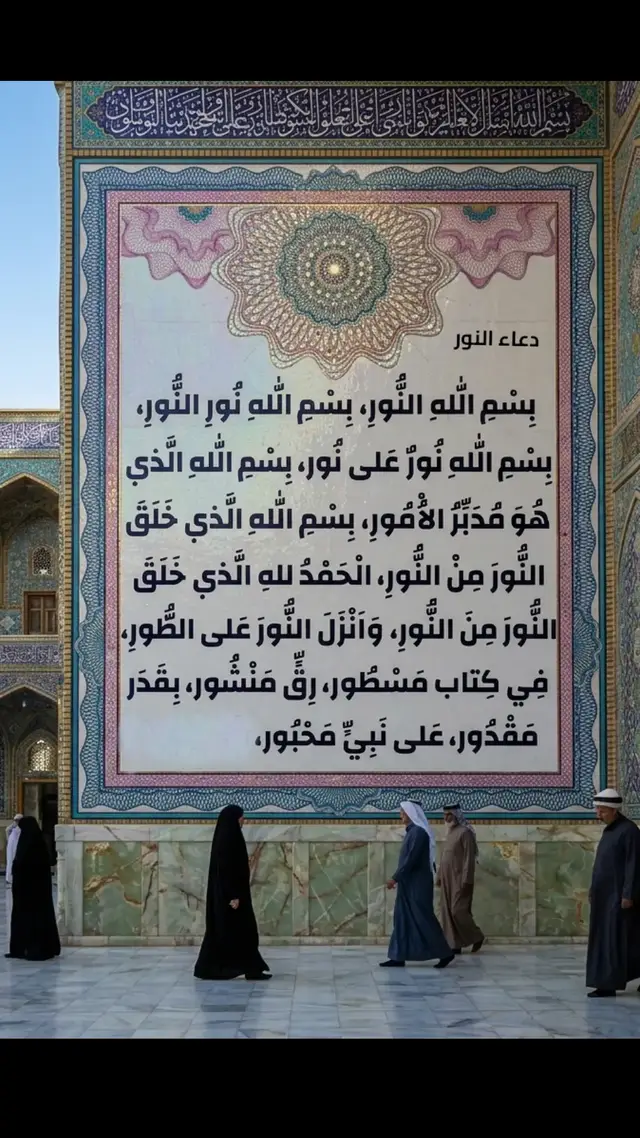 دعاء النور
بِسْمِ اللّٰهِ النُّورِ، بِسْمِ اللّٰهِ نُورِ النُّورِ،
بِسْمِ اللّٰهِ نُورٌ عَلى نُور، بِسْمِ اللّٰهِ الَّذي
هُوَ مُدَبِّرُ الأُمُورِ، بِسْمِ اللّٰهِ الَّذي خَلَقَ
النُّورَ مِنْ النُّورِ، الْحَمْدُ للهِ الَّذي خَلَقَ
النُّورَ مِنَ النُّورِ، وَاَنْزَلَ النُّورَ عَلى الطُّورِ،
فِي كِتاب مَسْطُور، رِقٍّ مَنْشُور، بِقَدَر
مَقْدُور، عَلى نَبِيٍّ مَحْبُور،